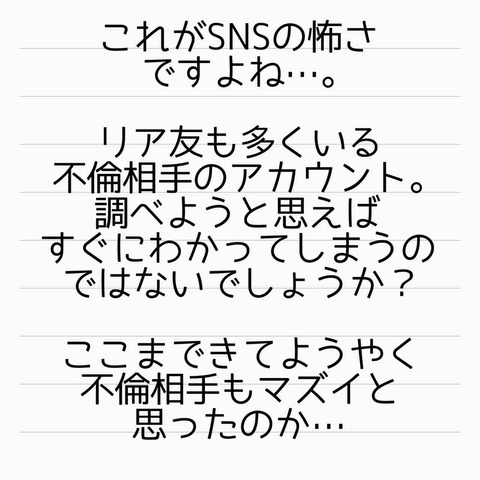 これがSNSの怖さ
ですよね…。
リア友も多くいる
不倫相手のアカウント。
調べようと思えば
すぐにわかってしまうの
ではないでしょうか？
ここまできてようやく
不倫相手もマズイと
思ったのか…